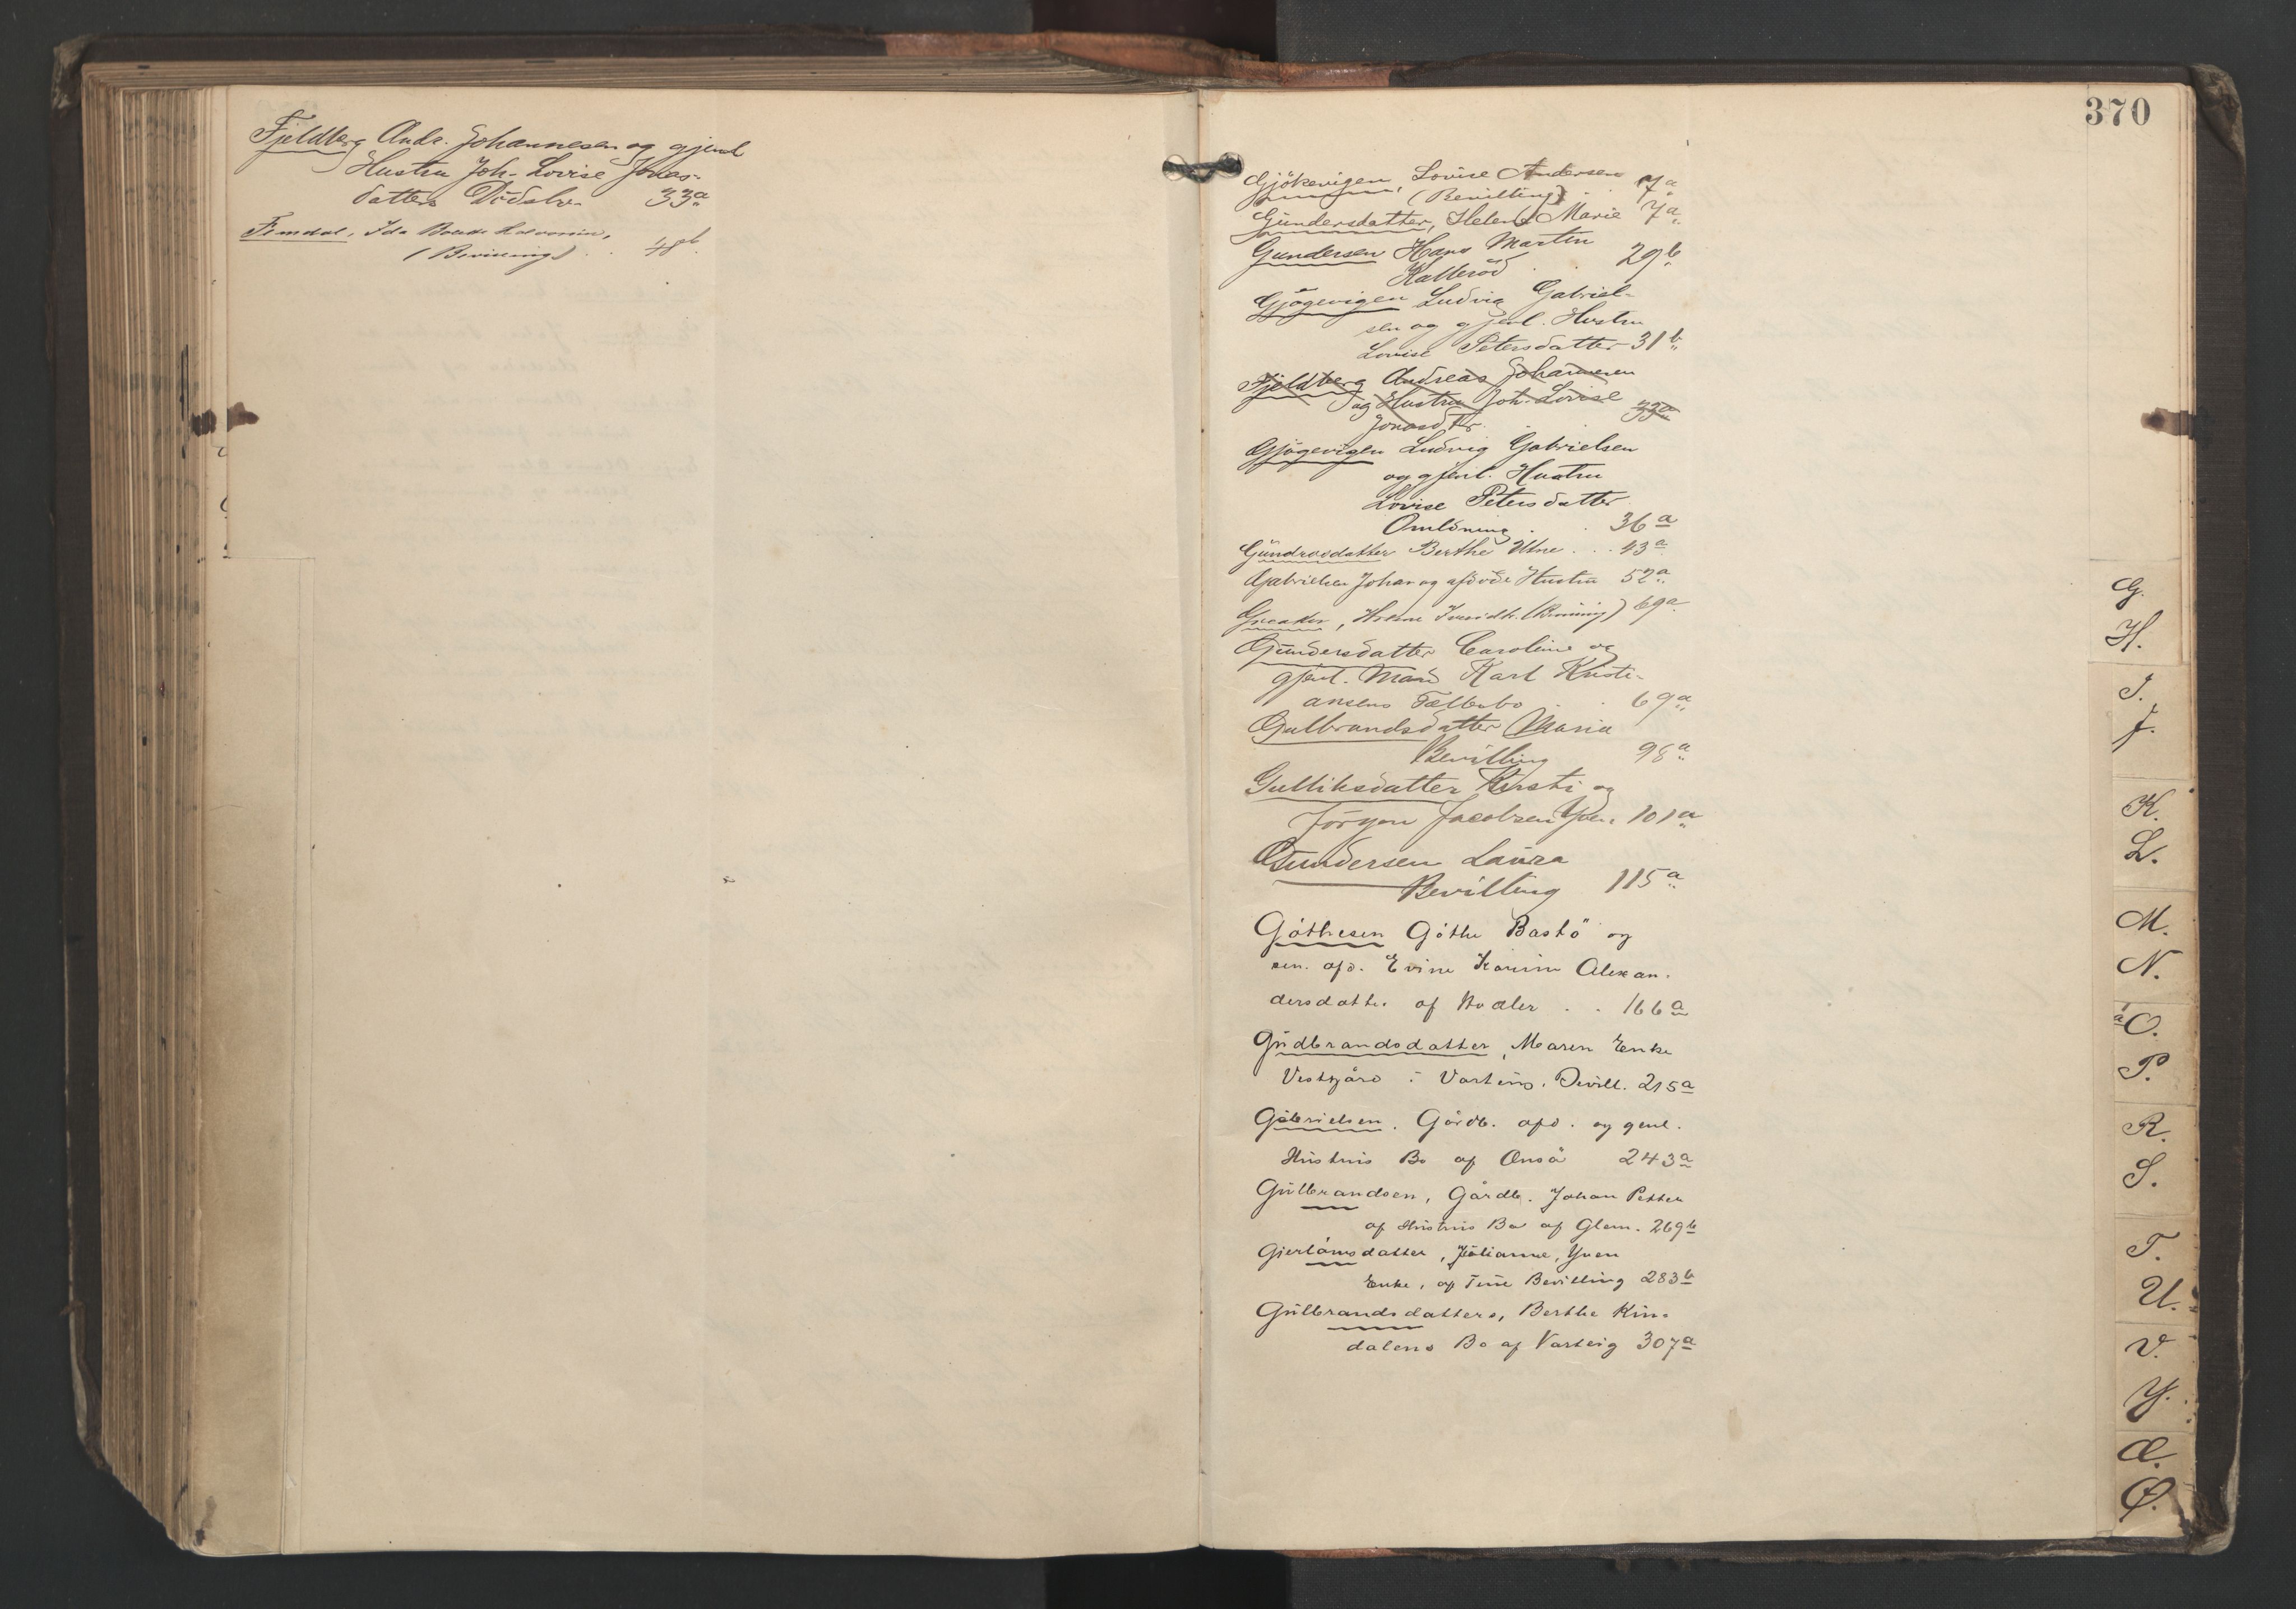 Fjeldberg Andr. Johannesen og gjenl
Hustru Joh. Lovise Jonas-
datters Dödsbo 33a
Femdal, Ida Halvorsen,
(Bevilling) . . 48b.
370
Gjökevigen, Lovise Andersen 7a
(Bevilling)
Gundersdatter, Helene Marie 7a
Gundersen Hans Martin
Kalleröd . . 29b
Gjögevigen Ludvig Gabriel-
sen og gjenl. Hustru
Lovise Petersdatter 31b
Fjeldberg Andreas Johannesen
og Hustru Joh. Lovise 33a
Jonasdtr.
Gjögevigen Ludvig Gabrielsen
og gjenl. Hustru
Lovise Petersdatter
Omlöning . . 36a
Gundrosdatter Berthe . . . 43a
Gabrielsen Johan og afdöde Hustru 52a
Greaker, 69a
Gundersdatter Caroline og
gjenl. Mand Karl Kristi-
ansens Fællesbo . . 69a
Gulbrandsdatter Maria
Bevilling 98a
Gulliksdatter Kirsti og
Jörgen Jacobsen Yven 101a
Gundersen Laura
Bevilling 115a
Göthesen Göthe Bastö og
sen. afd. Evine Karine Alexan-
dersdatter af Hvaler . . 166a
Gudbrandsdatter, Maren Enke
Vestgård i Varteig. Bevill. 215a
Gabrielsen. Gårdb. afd. og genl.
Hustrus Bo af Onsö 243a
Gulbrandsen, Gårdb. Johan Petter
af Hustrus Bo af Glem. 269b
Gjerlöwsdatter, Julianne, Yven
Enke, af Tune Bevilling 283b
Gulbrandsdatters, Berthe Kin-
dalens Bo af Varteig 307a
G.
H.
I.
J.
K.
L.
M.
N.
O.
P.
R.
S.
T.
U.
V.
Y.
Æ.
Ø.